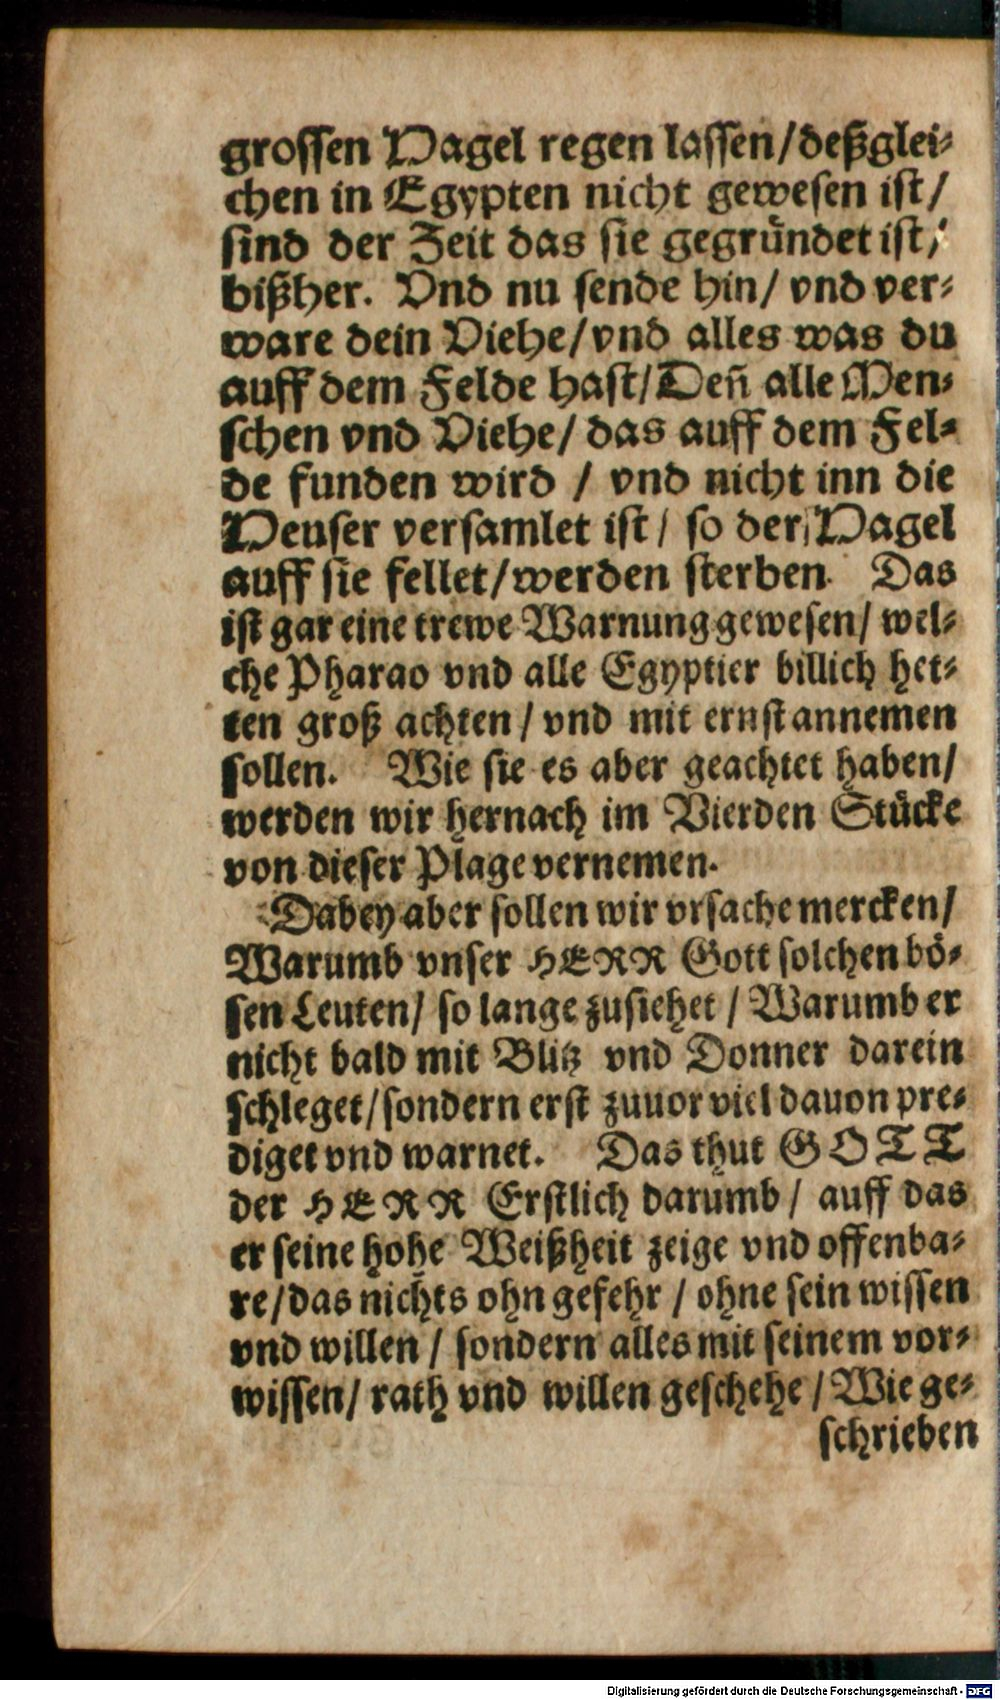 grossen Hagel regen lassen/deßglei-
chen in Egypten nicht gewesen ist/
sind der Zeit das sie gegründet ist/
bißher. Vnd nu sende hin/ vnd ver-
ware dein Viehe/vnd alles was du
auff dem Felde hast/Deñ alle Men-
schen vnd Viehe/ das auff dem Fel-
de funden wird / vnd nicht inn die
Heuser versamlet ist/ so der Hagel
auff sie fellet/werden sterben. Das
ist gar eine trewe Warnung gewesen/ wel-
che Pharao vnd alle Egyptier billich het-
ten groß achten/ vnd mit ernst annemen
sollen. Wie sie es aber geachtet haben/
werden wir hernach im Vierden Stücke
von dieser Plage vernemen.
Dabey aber sollen wir vrsache mercken/
Warumb vnser HERR Gott solchen bö-
sen Leuten/ so lange zusiehet / Warumb er
nicht bald mit Blitz vnd Donner darein
schleget/sondern erst zuuor viel dauon pre-
diget vnd warnet. Das thut GOTT
der HERR Erstlich darumb / auff das
er seine hohe Weißheit zeige vnd offenba-
re/das nichts ohn gefehr / ohne sein wissen
vnd willen / sondern alles mit seinem vor-
wissen/ rath vnd willen geschehe / Wie ge-
schrieben
Digitalisierung gefördert durch die Deutsche Forschungsgemeinschaft - DFG